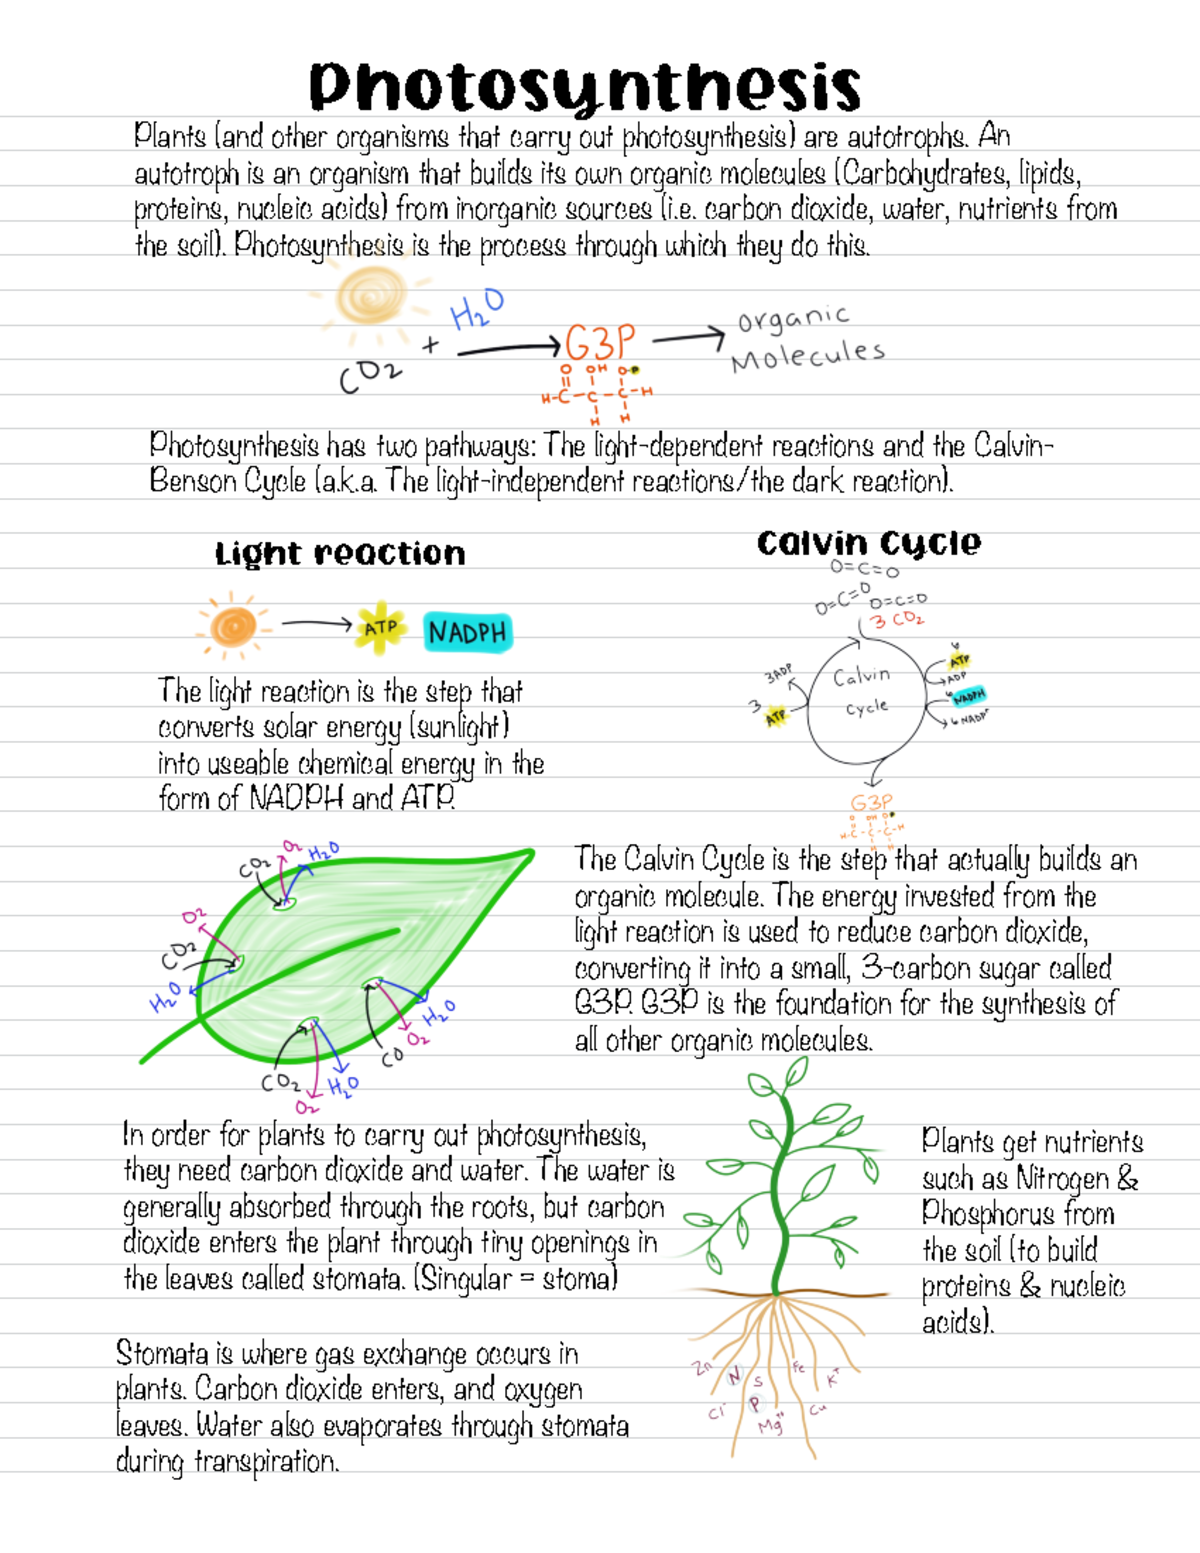 Photosynthesis
Plants (and other organisms that carry out photosynthesis) are autotrophs. An
autotroph is an organism that builds its own organic molecules (Carbohydrates, lipids,
proteins, nucleic acids) from inorganic sources (i.e. carbon dioxide, water, nutrients from
the soil). Photosynthesis is the process through which they do this.
CO2 + H2O
G3P
organic
Molecules
O OH O-P
H-C-C-C-H
H H
Photosynthesis has two pathways: The light-dependent reactions and the Calvin-
Benson Cycle (a.k.a. The light-independent reactions/the dark reaction).
Light reaction
ATP NADPH
The light reaction is the step that
converts solar energy (sunlight)
into useable chemical energy in the
form of NADPH and ATP.
Calvin Cycle
O=C=O
O=C=O O=C=O
3 CO2
Calvin
Cycle
3ADP
3 ATP
6 ATP
ADP
6 NADPH
6 NADP+
G3P
O OH O-P
H-C-C-C-H
H H
The Calvin Cycle is the step that actually builds an
organic molecule. The energy invested from the
light reaction is used to reduce carbon dioxide,
converting it into a small, 3-carbon sugar called
G3P. G3P is the foundation for the synthesis of
all other organic molecules.
CO2 O2 H2O
O2
CO2
H2O
CO2
O2
H2O
CO
O2
H2O
In order for plants to carry out photosynthesis,
they need carbon dioxide and water. The water is
generally absorbed through the roots, but carbon
dioxide enters the plant through tiny openings in
the leaves called stomata. (Singular = stoma)
Stomata is where gas exchange occurs in
plants. Carbon dioxide enters, and oxygen
leaves. Water also evaporates through stomata
during transpiration.
Plants get nutrients
such as Nitrogen &
Phosphorus from
the soil (to build
proteins & nucleic
acids).
Zn N S Fe K+
Cl- P Mg++ Cu